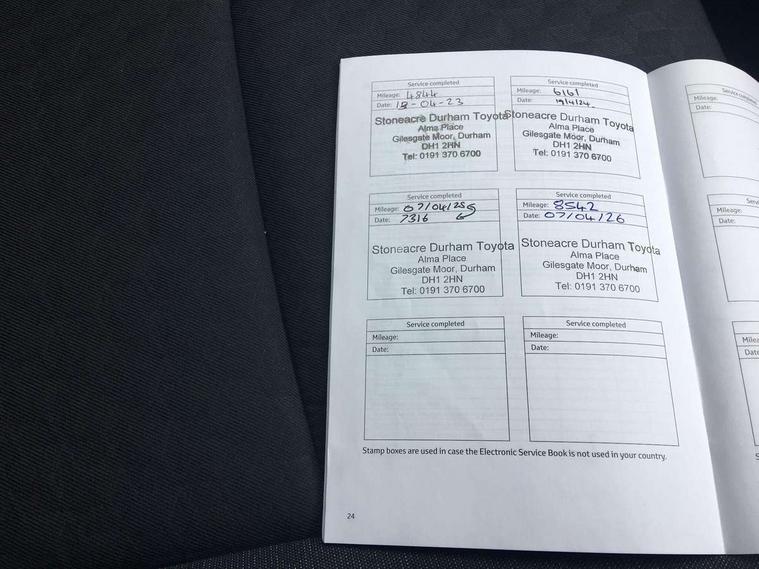 Service completed
Mileage: 4844
Date: 18-04-23
Stoneacre Durham Toyota
Alma Place
Gilesgate Moor, Durham
DH1 2HN
Tel: 0191 370 6700
Service completed
Mileage: 6161
Date: 19/4/24
Stoneacre Durham Toyota
Alma Place
Gilesgate Moor, Durham
DH1 2HN
Tel: 0191 370 6700
Service completed
Mileage: 07/04/25
Date: 7316
Stoneacre Durham Toyota
Alma Place
Gilesgate Moor, Durham
DH1 2HN
Tel: 0191 370 6700
Service completed
Mileage: 8542
Date: 07/04/26
Stoneacre Durham Toyota
Alma Place
Gilesgate Moor, Durham
DH1 2HN
Tel: 0191 370 6700
Service completed
Mileage:
Date:
Service completed
Mileage:
Date:
Stamp boxes are used in case the Electronic Service Book is not used in your country.
24
Mileage:
Date:
Mileage:
Date: